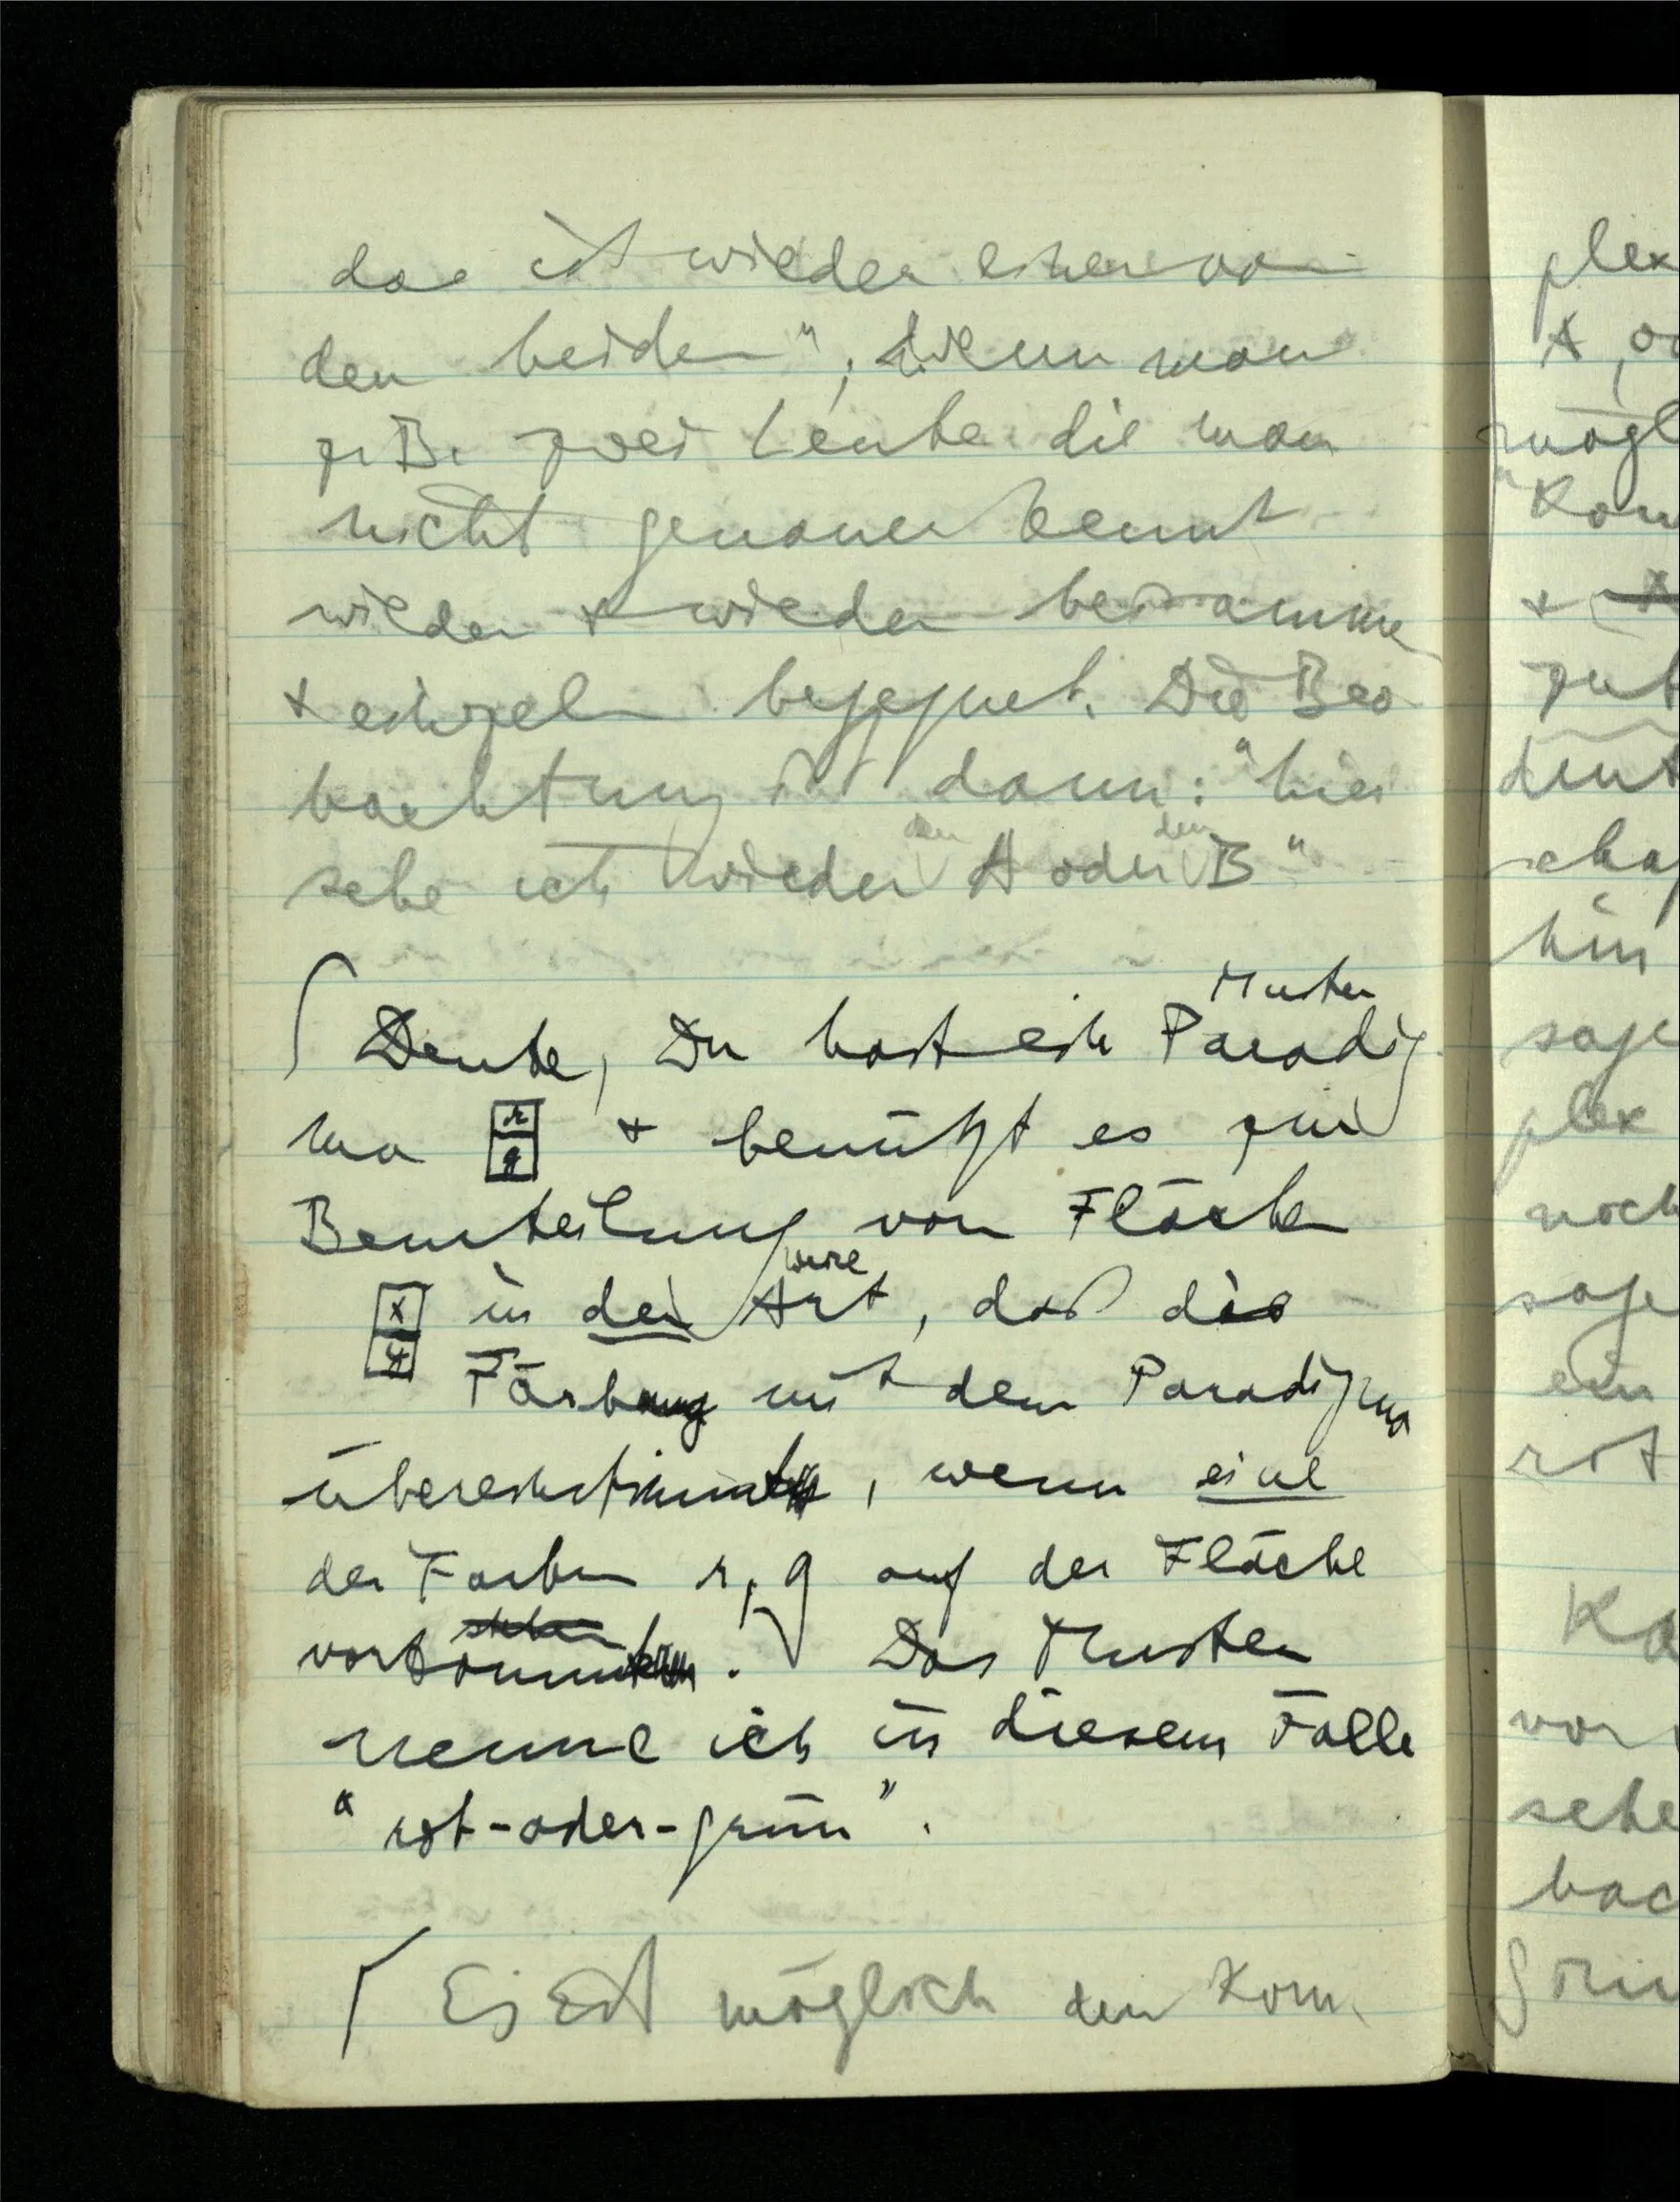 das ist wieder einer von
den beiden”, wenn man
z.B. zwei Leute die man
nicht genauer kennt
wieder & wieder beisammen
& einzeln begegnet. Die Beo
bachtung ist dann: “hier
den den
sehe ich wieder A oder B”
Muster
Denke, Du hast ein Paradig
ma r g & benützt es zur
Beurteilung von Flächen
weise
x y in der Art, daß die
Färbung mit dem Paradigma
übereinstimmt, wenn eine
der Farben r, g auf der Fläche
stehen
vorkommt. Das Muster
nenne ich in diesem Falle
“rot-oder-grün”.
Es ist möglich den Kom
plex
A, od
mögl
“Kom
&
zuf
deut
scha
hin
sage
plex
noch
sage
ein
rot
Ko
vor
sehe
bac
grün